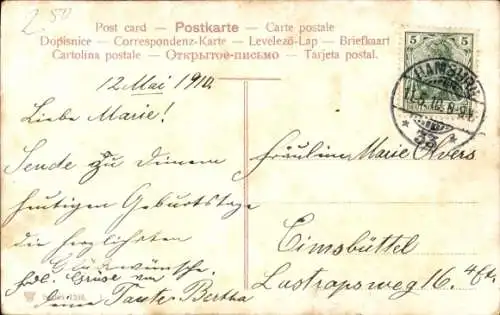 2.50
Post card — Postkarte — Carte postale
Dopisnice — Correspondenz-Karte — Levelező-Lap — Briefkaart
Cartolina postale — Открытое письмо — Tarjeta postal.
5 5
HAMBURG
12 Mai 1910.
Liebe Marie!
Sende zu Deinem
heutigen Geburtstage
die herzlichsten
Glückwünsche.
Grüße von
Deine Tante Bertha
Fräulein Marie
Eimsbüttel
16. 4 Et.